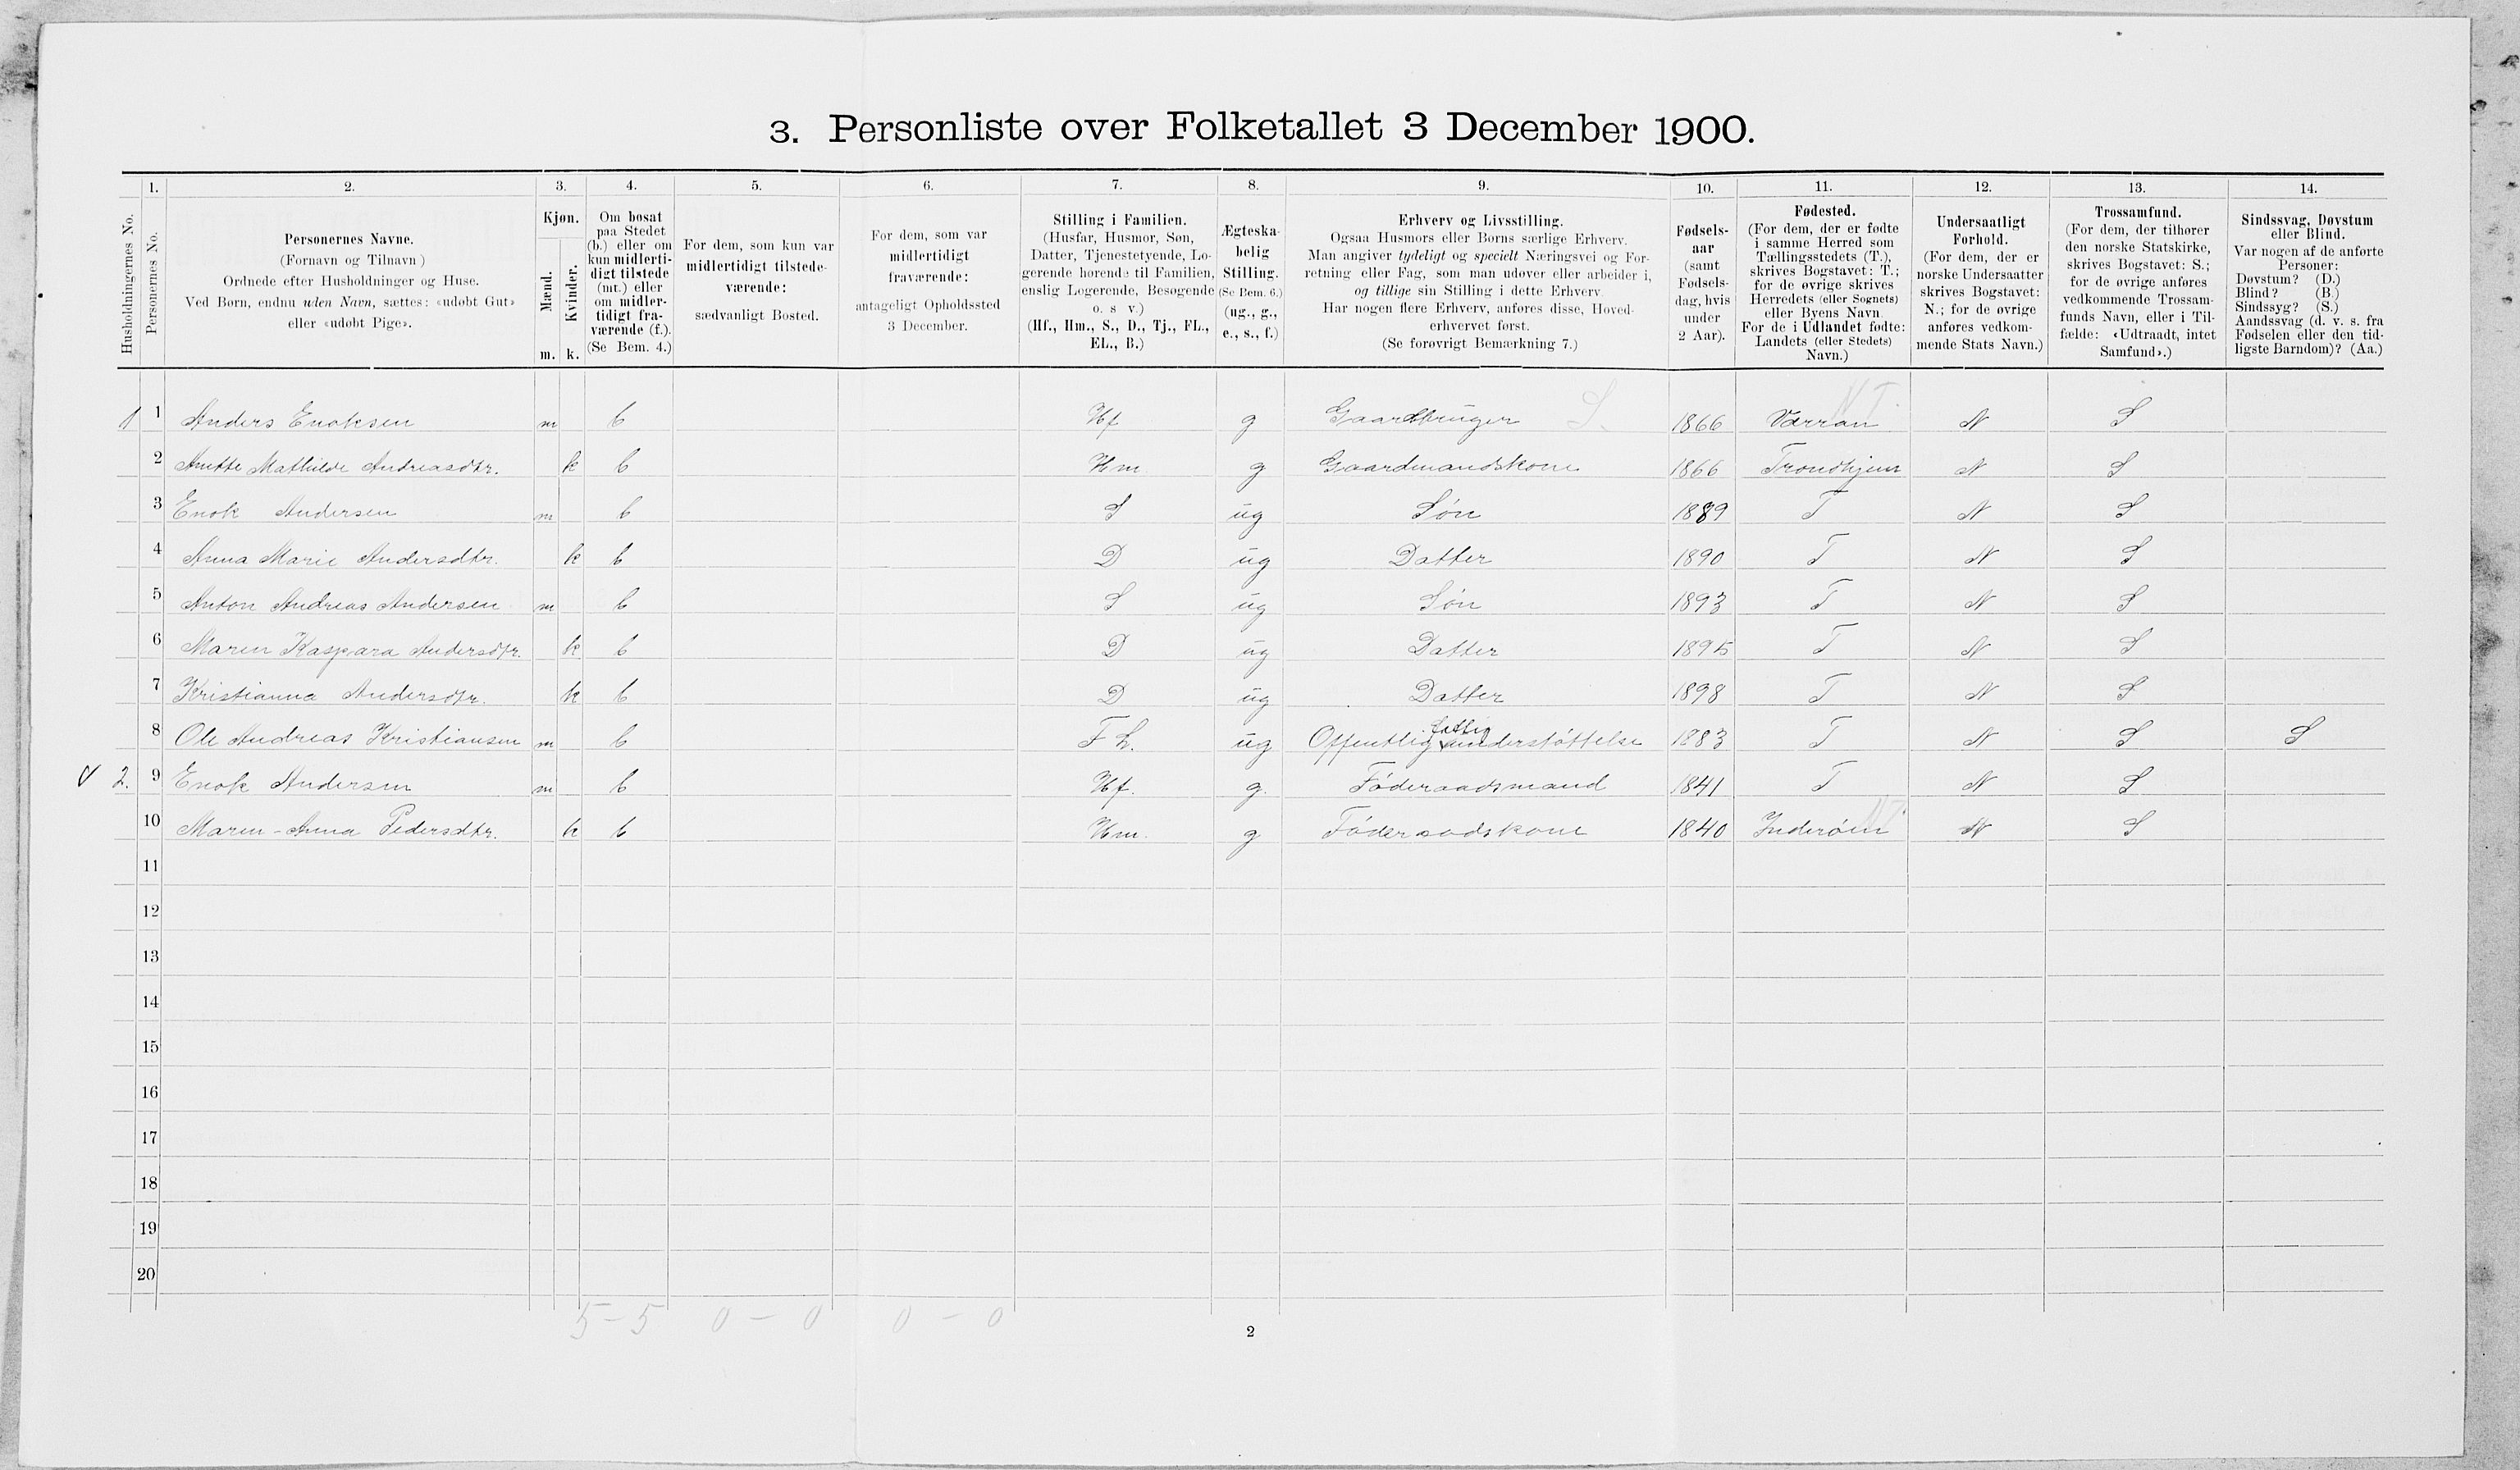 3. Personliste over Folketallet 3 December 1900.
Husholdningernes No.
1.
Personernes No.
2.
Personernes Navne.
(Fornavn og Tilnavn)
Ordnede efter Husholdninger og Huse.
Ved Børn, endnu uden Navn, sættes: «udøbt Gut»
eller «udøbt Pige».
3.
Kjøn.
Mænd.
Kvinder.
m. k.
4.
Om bosat
paa Stedet
(b.) eller om
kun midlerti-
digt tilstede
(mt.) eller
om midler-
tidigt fra-
værende (f.).
(Se Bem. 4.)
5.
For dem, som kun var
midlertidigt tilstede-
værende:
sædvanligt Bosted.
6.
For dem, som var
midlertidigt
fraværende:
antageligt Opholdssted
3 December.
7.
Stilling i Familien.
(Husfar, Husmor, Søn,
Datter, Tjenestetyende, Lo-
gerende hørende til Familien,
enslig Logerende, Besøgende
o. s v.)
(Hf., Hm., S., D., Tj., FL.,
EL., B.)
8.
Ægteska-
belig
Stilling.
(Se Bem. 6.)
(ug., g.,
e., s., f.)
9.
Erhverv og Livsstilling.
Ogsaa Husmors eller Børns særlige Erhverv.
Man angiver tydeligt og specielt Næringsvei og For-
retning eller Fag, som man udøver eller arbeider i,
og tillige sin Stilling i dette Erhverv.
Har nogen flere Erhverv, anføres disse, Hoved-
erhvervet først.
(Se forøvrigt Bemærkning 7.)
10.
Fødsels-
aar
(samt
Fødsels-
dag, hvis
under
2 Aar).
11.
Fødested.
(For dem, der er fødte
i samme Herred som
Tællingsstedets (T.),
skrives Bogstavet: T.;
for de øvrige skrives
Herredets (eller Sognets)
eller Byens Navn.
For de i Udlandet fødte:
Landets (eller Stedets)
Navn.)
12.
Undersaatligt
Forhold.
(For dem, der er
norske Undersaatter
skrives Bogstavet:
N.; for de øvrige
anføres vedkom-
mende Stats Navn.)
13.
Trossamfund.
(For dem, der tilhører
den norske Statskirke,
skrives Bogstavet: S.;
for de øvrige anføres
vedkommende Trossam-
funds Navn, eller i Til-
fælde: «Udtraadt, intet
Samfund».)
14.
Sindssvag, Døvstum
eller Blind.
Var nogen af de anførte
Personer:
Døvstum? (D.)
Blind? (B.)
Sindssyg? (S.)
Aandssvag (d. v. s. fra
Fødselen eller den tid-
ligste Barndom)? (Aa.)
1 1 Anders Enoksen m b Hf g Gaardbruger S. 1866 Værran N T N S
2 Mathilde Andreasdtr. k b Hm g Gaardmandskone 1866 Trondhjem N S
3 Enok Andersen m b S ug Søn 1889 T N S
4 Anna Marie Andersdtr. k b D ug Datter 1890 T N S
5 Anton Andreas Andersen m b S ug Søn 1893 T N S
6 Maren Kaspara Andersdtr. k b D ug Datter 1895 T N S
7 Kristianna Andersdtr. k b D ug Datter 1898 T N S
8 Ole Andreas Kristiansen m b F L. ug Offentlig fattig understøttelse 1883 T N S S
V 2. 9 Enok Andersen m b Hf. g. Føderaadsmand 1841 T N S
10 Maren-Anna Pedersdtr. k b Hm. g Føderaadskone 1840 Inderøen NT N S
11
12
13
14
15
16
17
18
19
20
5-5 0-0 0-0
2